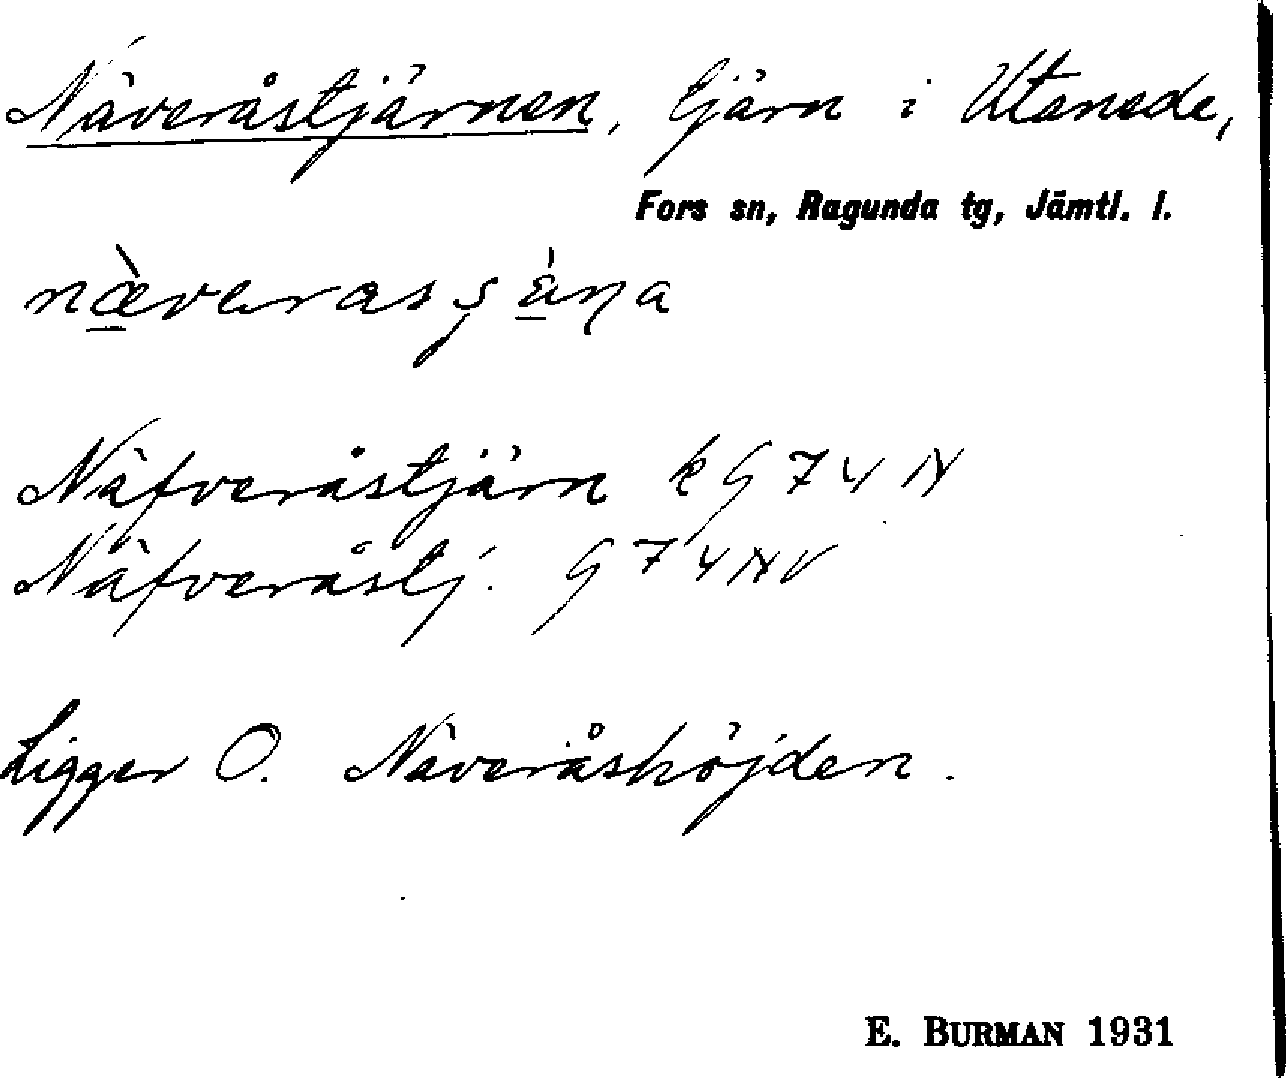 Näveråstjärnen, tjärn i Utanede,
Fors sn, Ragunda tg, Jämtl. l.
Näfveråstjärn k G 74 N
Näfveråstj. G 74 NV
Ligger O. Näveråshöjden.
E. BURMAN 1931